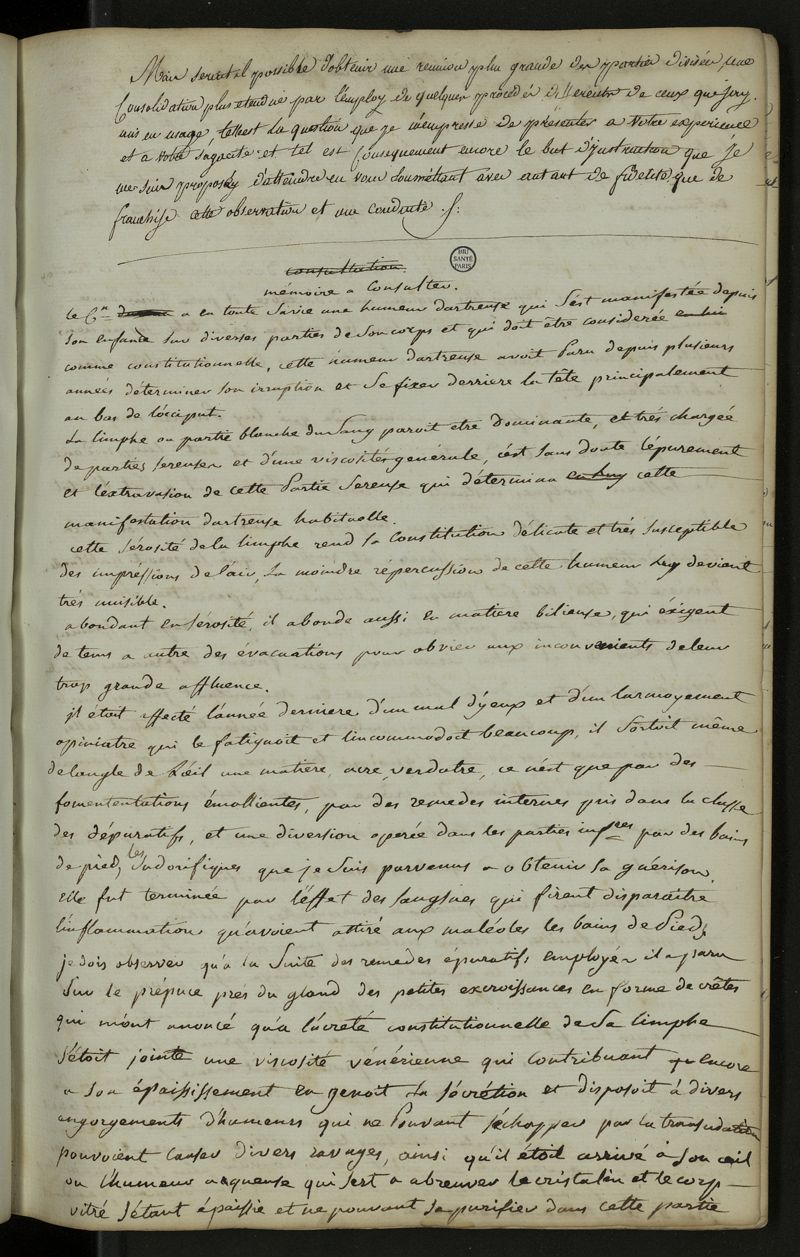 Mais seroit-il possible d'obtenir une reunion plus grande des parties divisées, une
Consolidation plus etendue par l'employ de quelques procedés differents de ceux que j'ay
mis en usage, telle est la question que je m'empresse de présenter a votre experience
et a votre sagacité et tel est consequement encore le but d'jnstruction que je
me suis proposé d'attendre en vous soumettant avec autant de fidelité que de
franchise cette observation et ma conduite. /:
BIU
SANTÉ
PARIS
consultation.
mémoire a consulter.
le C.en a eu toute sa vie une humeur dartreuse qui s'est manifestée depuis
son enfance sur diverses parties de son corps et qui doit être considerée en lui
comme constitutionnelle, cette humeur dartreuse avoit paru depuis plusieurs
années déterminer son irruption et se fixer derriere la tete principalement
au bas de l'óciput.
La limphe ou partie blanche du sang paroit etre dominante, et trés chargée
de parties sereuses et d'une viscosité génerale, c'est sans doute l'épurement
et l'éxtravasion de cette partie sereuse qui détermina en luy cette
manifestation dartreuse habituelle.
cette sérosité de la limphe rend sa constitution délicate et trés susceptible
des impréssions de l'air, La moindre repercussion de cette humeur luy devient
trés nuisible.
abondant en sérosité il abonde aussi en matiere bilieuse, qui éxigent
de tems a autre des évacuations pour obvier aux inconvenients de leur
trop grande affluence.
jl étoit affecté l'année derniere d'un mal d'yeux et d'un larmoyement
opiniatre qui le fatiguoit et l'incommodoit beaucoup, il sortoit même
de l'angle de l'œil une matiere acre, verdatre, ce n'est que par des
fomententations émollientes, par des remedes internes pris dans la classe
des dépuratifs, et une diversion operée dans les parties infres par des bains
de pied, les sudorifiques que je suis parvenus a obtenir sa guérison.
elle fut terminée par l'éffet des sangsues qui firent disparaitre
l'inflammation qu'avoient attiré aux maléoles les bains de pieds
je dois observer qu'a la suite des remedes épuratifs employés il a paru
sur le prépuce prés du gland des petites excroissances en forme de crêtes
qui m'ont anoncé qu'a l'acreté constitutionnelle de sa limphe
s'étoit jointe une viscosité vénérienne qui contribuant encore
a son épaississement en genoit la sécrétion et disposoit á divers
angorgements d'humeurs qui ne pouvant séchapper par la transudation
pouvoient causer divers ravages, ainsi qu'il étoit arrivé á son œil
ou l'humeur aqueuse qui sert a abreuver le cristalin et le corp
vitré s'étant épaissie et ne pouvant se purifier dans cette partie